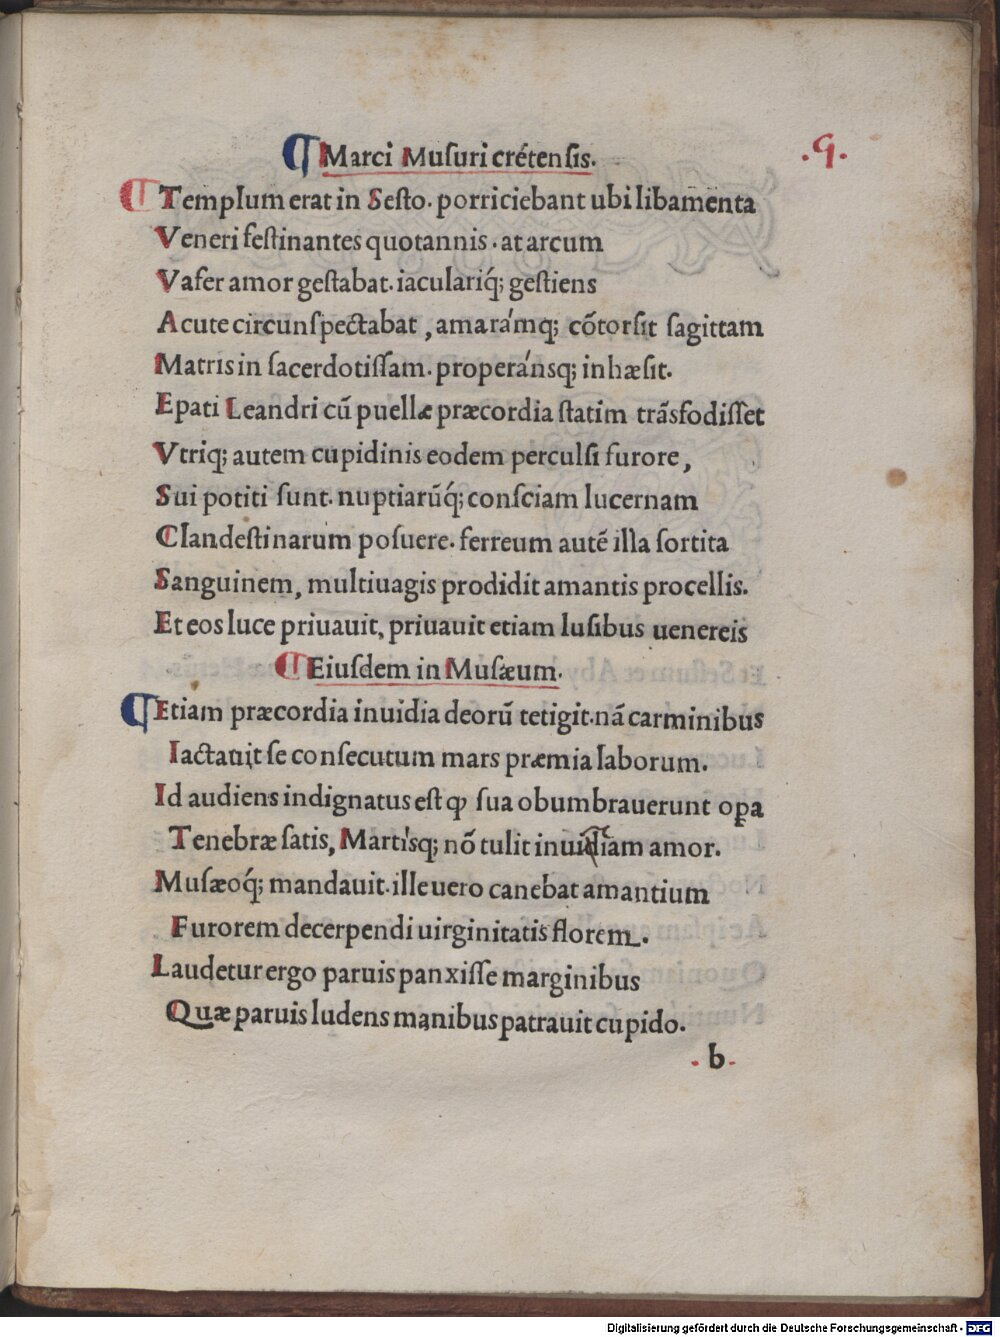 ¶ Marci Musuri crétensis. .9.
¶ Templum erat in Sesto. porriciebant ubi libamenta
Veneri festinantes quotannis. at arcum
Vafer amor gestabat. iaculariq́; gestiens
Acute circunspectabat, amarámq; cōtorsit sagittam
Matris in sacerdotissam. properánsq; inhæsit.
Epati Leandri cū puellæ præcordia statim trāsfodisset
Vtriq; autem cupidinis eodem perculsi furore,
Sui potiti sunt. nuptiarūq́; consciam lucernam
Clandestinarum posuere. ferreum autē illa sortita
Sanguinem, multiuagis prodidit amantis procellis.
Et eos luce priuauit, priuauit etiam lusibus uenereis
¶ Eiusdem in Musæum.
¶ Etiam præcordia inuidia deorū tetigit. nā carminibus
Iactauit se consecutum mars præmia laborum.
Id audiens indignatus est ꝙ sua obumbrauerunt opa
Tenebræ satis, Martísq; nō tulit inuidiam amor.
Musæoq́; mandauit. ille uero canebat amantium
Furorem decerpendi uirginitatis florem.
Laudetur ergo paruis panxisse marginibus
Quæ paruis ludens manibus patrauit cupido.
.b.
Digitalisierung gefördert durch die Deutsche Forschungsgemeinschaft - DFG